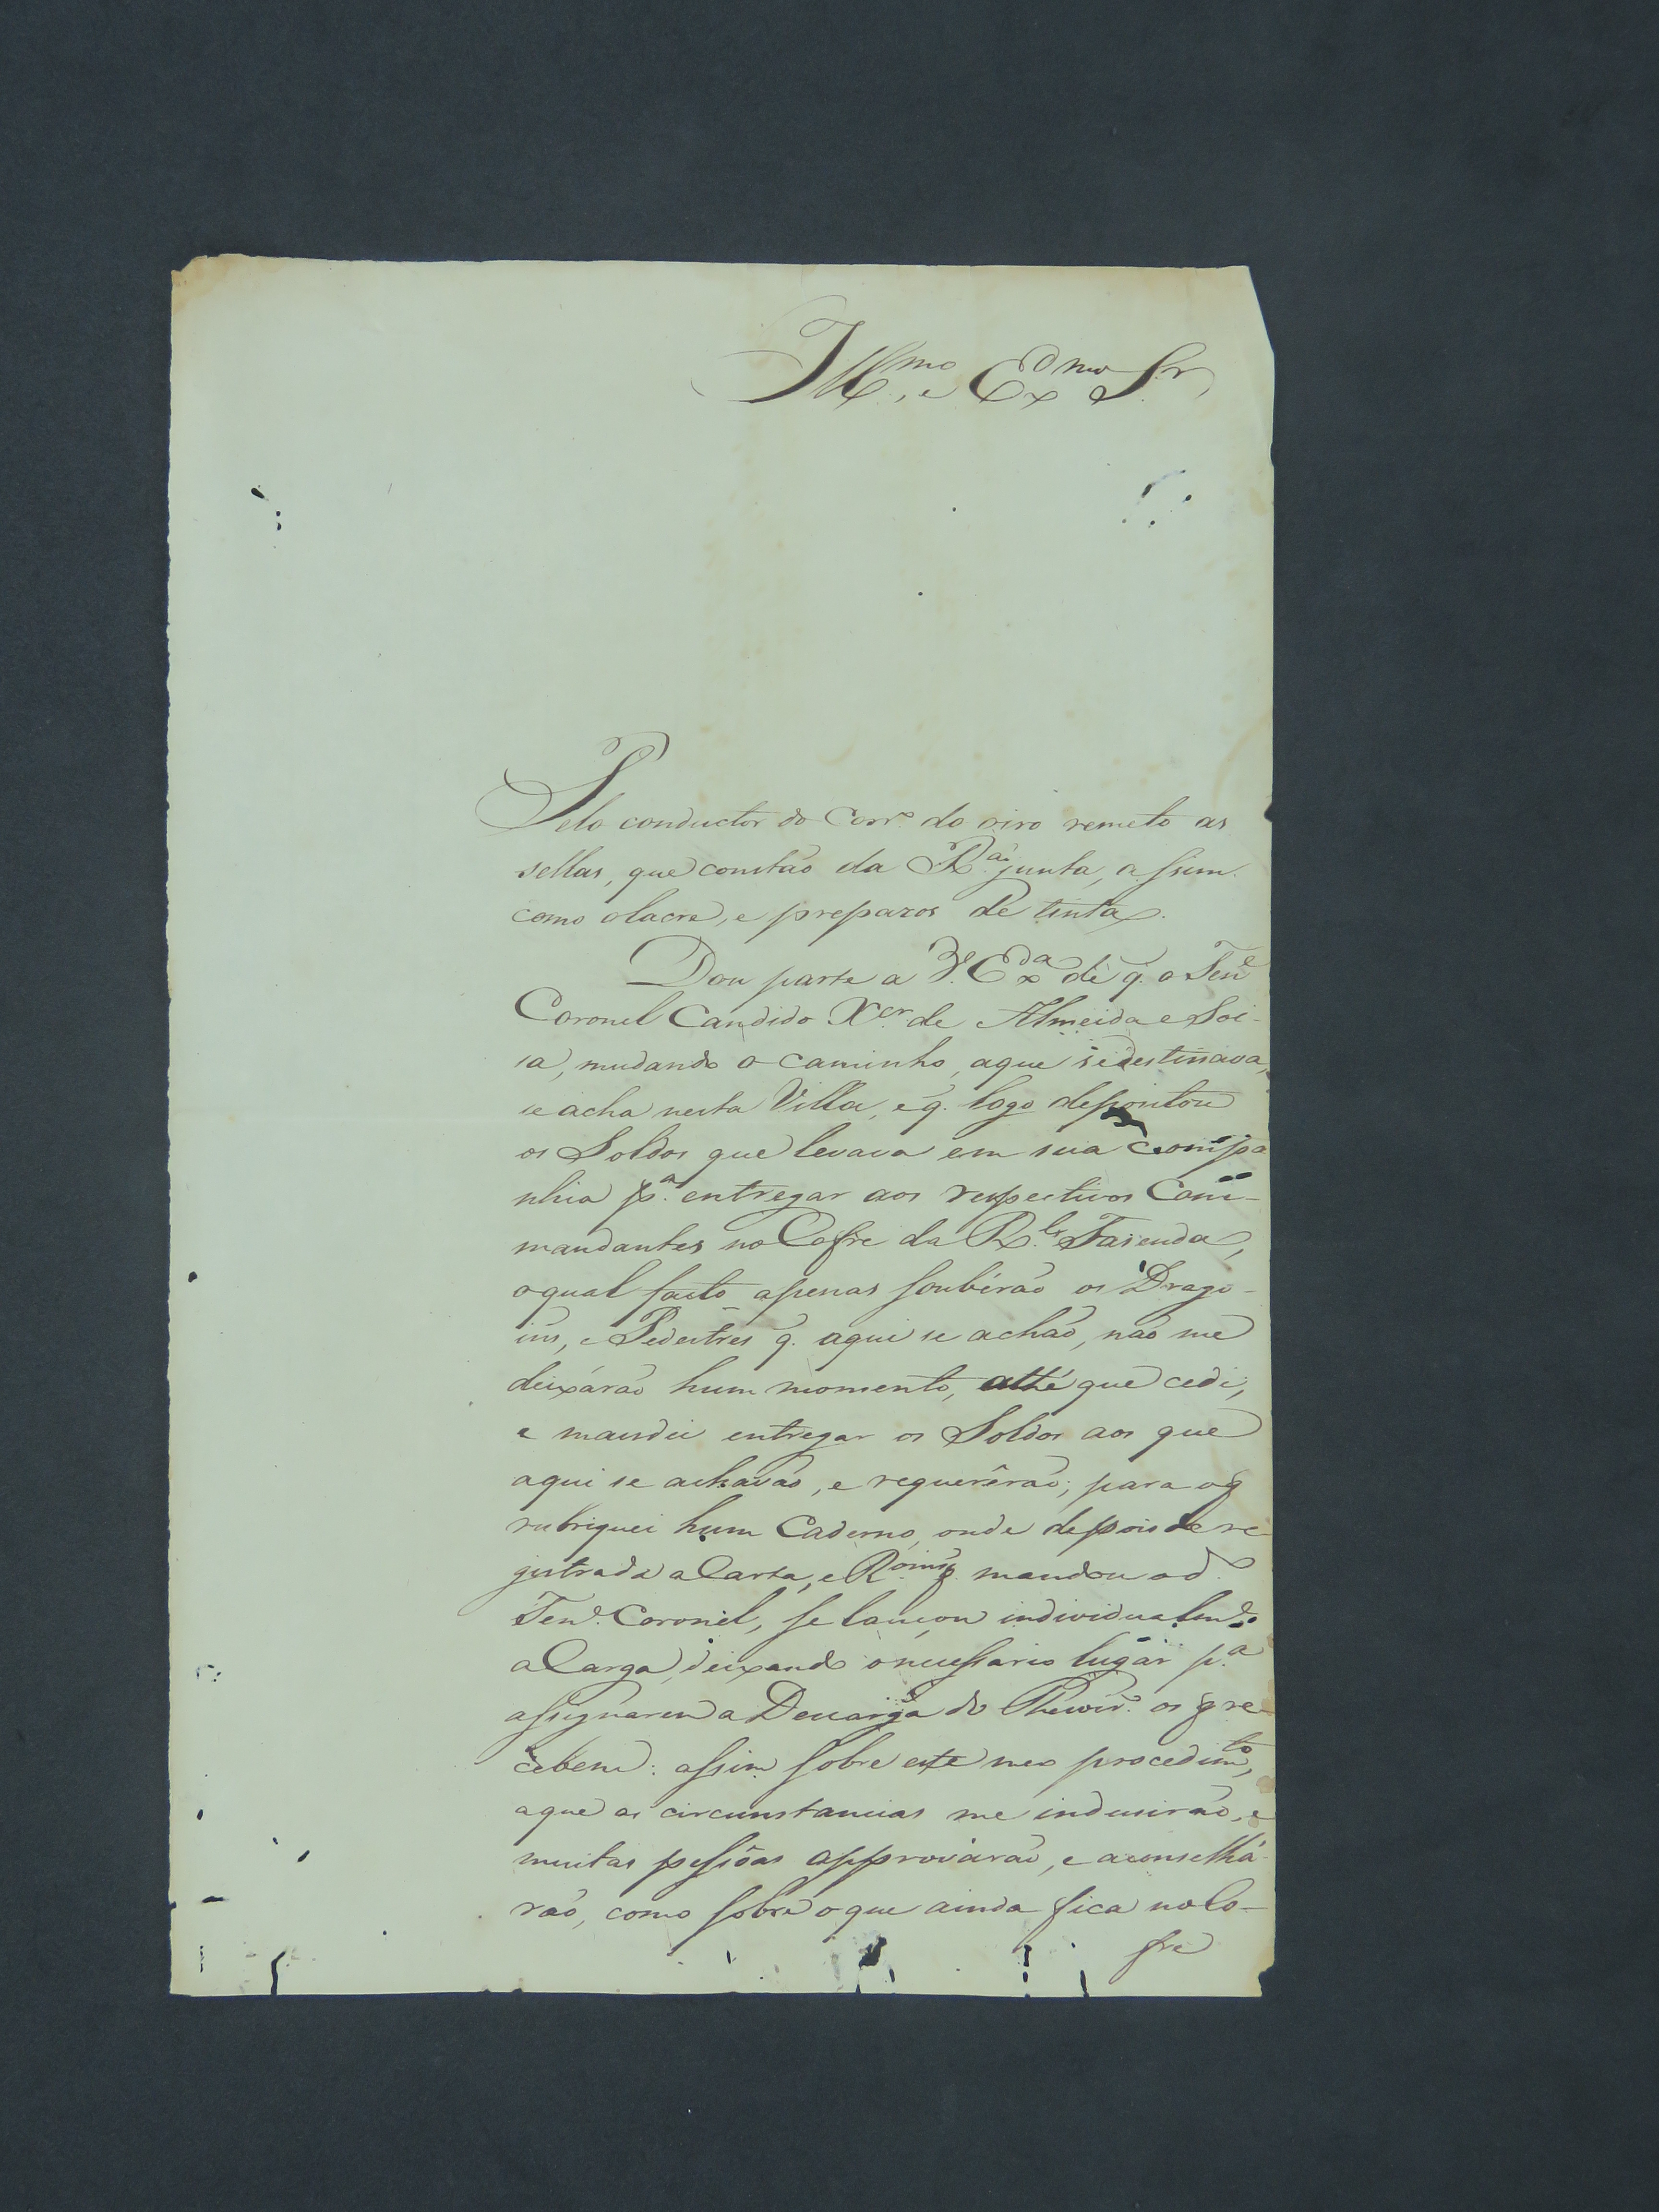 Ill.mo, e Ex.mo S.r
Pelo conductor do Corr.o do giro remeto as
sellas, que constão da R.am junta, assim
como olacre, e preparos de tinta.
Dou parte a V. Ex.a de q. o Ten.e
Coronel Candido X.er de Almeida e Soi-
sa, mudando o caminho, aque sedestinava,
se acha nesta Villa, e q. logo depositou
os Soldos que levava em sua compa
nhia p.a entregar aos respectivos Com-
mandantes no Cofre da R.l Fasenda,
oqual facto apenas souberão os Drago-
ins, e Pedestres q. aqui se achão, não me
deixárão hum momento, athé que cedi,
e mandei entregar os Soldos aos que
aqui se achavão, e requerêrão; para oq
rubriquei hum Caderno, onde depois de re
gistrada a Carta, e R. q. mandou o d.o
Ten.e Coronel, se lançou individualm.e
a Carga, deixando onecessario lugar p.a
assignarem a Descarga do Thesoir.o os q re
cebem: assim sobre este meo procedim.to,
aque as circunstancias me indusirão, e
muitas pessôas approvárão, e aconselhá-
rão, como sobre o que ainda fica no Co-
fre